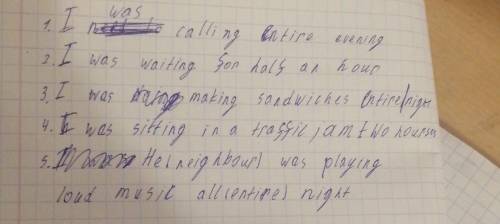 1. I was calling entire evening
2. I was waiting for half an hour
3. I was making sandwiches entire night
4. I was sitting in a traffic jam two hours
5. He(neighbour) was playing
loud music all(entire) night